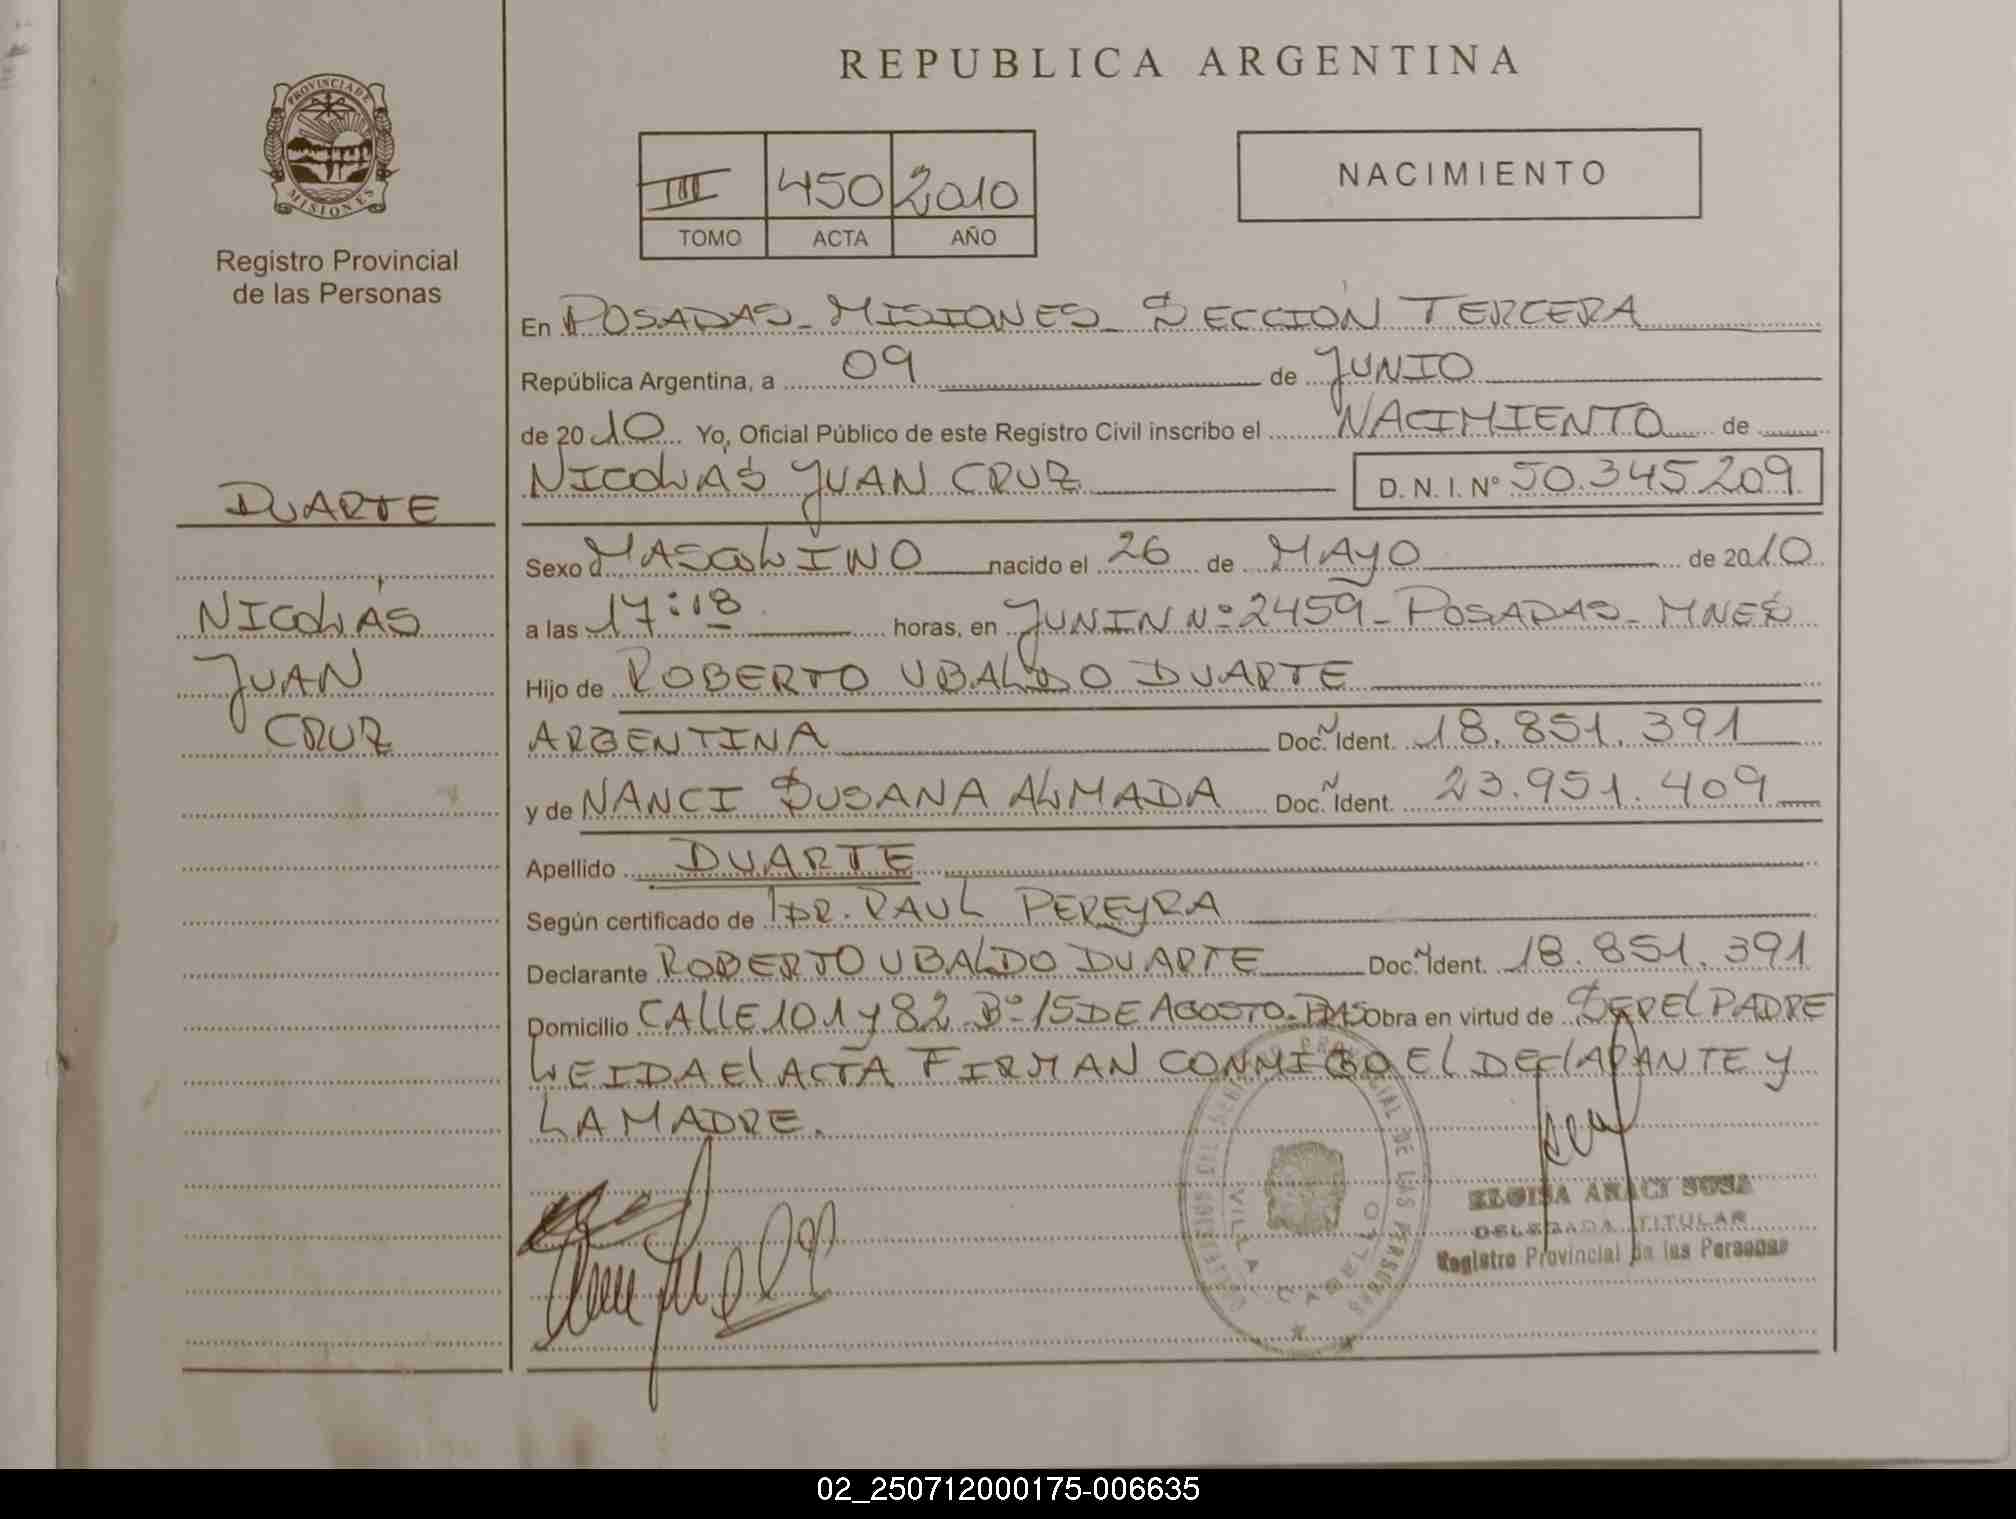 REPUBLICA ARGENTINA
PROVINCIA DE
MISIONES
Registro Provincial
de las Personas
III 450 2010
TOMO ACTA AÑO
NACIMIENTO
En POSADAS - MISIONES - SECCIÓN TERCERA
República Argentina, a 09 de JUNIO
de 2010 Yo, Oficial Público de este Registro Civil inscribo el NACIMIENTO de
NICOLÁS JUAN CRUZ D. N. I. Nº 50.345.209
DUARTE
NICOLÁS
JUAN
CRUZ
Sexo MASCULINO nacido el 26 de MAYO de 2010
a las 17:18 horas, en JUNIN Nº 2459 - POSADAS - MNES
Hijo de ROBERTO UBALDO DUARTE
ARGENTINA Doc. Ident. 18.851.391
y de NANCI SUSANA ALMADA Doc. Ident. 23.951.409
Apellido DUARTE
Según certificado de DR. RAUL PEREYRA
Declarante ROBERTO UBALDO DUARTE Doc. Ident. 18.851.391
Domicilio CALLE 101 y 82 - Bº 15 DE AGOSTO - PDAS Obra en virtud de SER EL PADRE
LEIDA El ACTA FIRMAN CONMIGO EL DEClARANTE y
LA MADRE.
VILLA CABELLO
ELOISA ANACI SOSA
DELEGADA TITULAR
Registro Provincial de las Personas
02_250712000175-006635